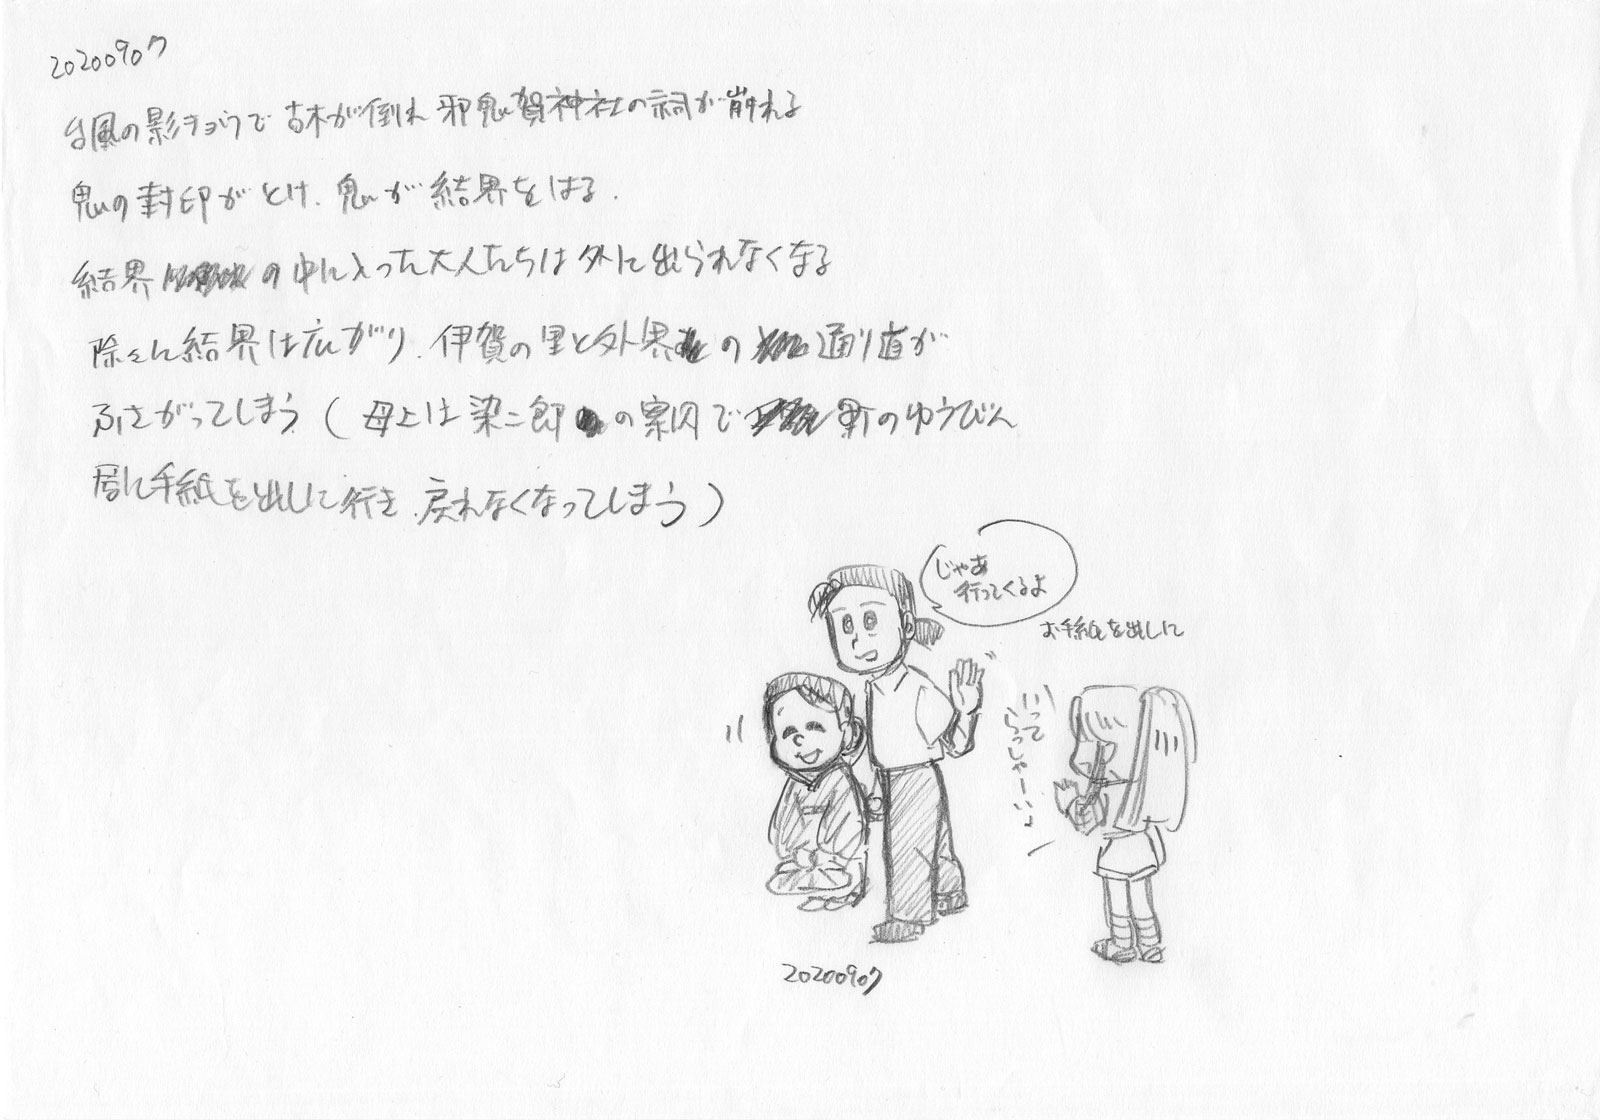 20200907
台風の影キョウで古木が倒れ邪鬼賀神社の祠が崩れる
鬼の封印がとけ、鬼が結界をはる.
結界の中に入った大人たちは外に出られなくなる
除々に結界は広がり、伊賀の里と外界の通り道が
ふさがってしまう(母上は染二郎の案内で町のゆうびん
局に手紙を出しに行き、戻れなくなってしまう)
じゃあ
行ってくるよ
お手紙を出しに
いって
らっしゃーい♪
20200907